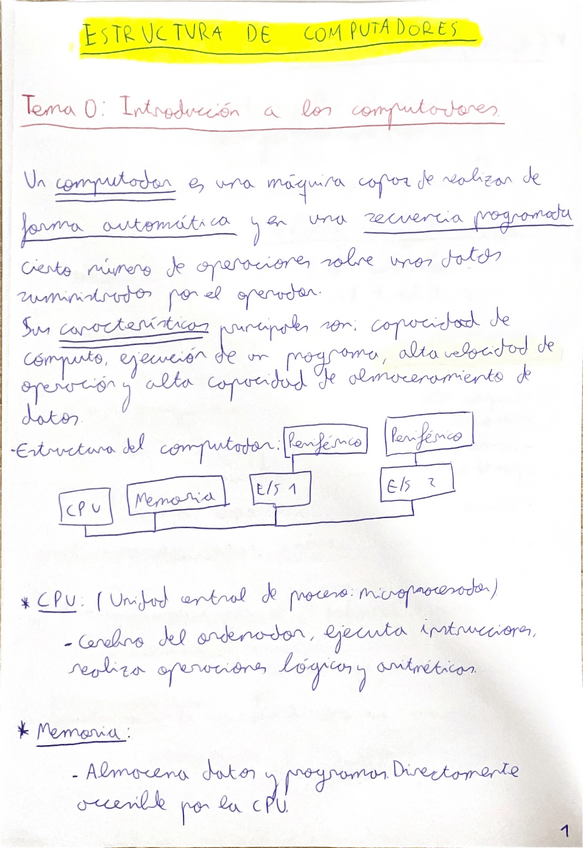 ESTRUCTURA DE COMPUTADORES
Tema 0: Introducción a los computadores.
Un computador es una máquina capaz de realizar de
forma automática y en una secuencia programada
cierto número de operaciones sobre unos datos
suministrados por el operador.
Sus características principales son: capacidad de
cómputo, ejecución de un programa, alta velocidad de
operación y alta capacidad de almacenamiento de
datos.
-Estructura del computador:
Periférico
Periférico
CPU
Memoria
E/S 1
E/S 2
* CPU: (Unidad central de proceso: microprocesador)
- Cerebro del ordenador, ejecuta instrucciones,
realiza operaciones lógicas y aritméticas.
* Memoria:
- Almacena datos y programas. Directamente
accesible por la CPU.
1